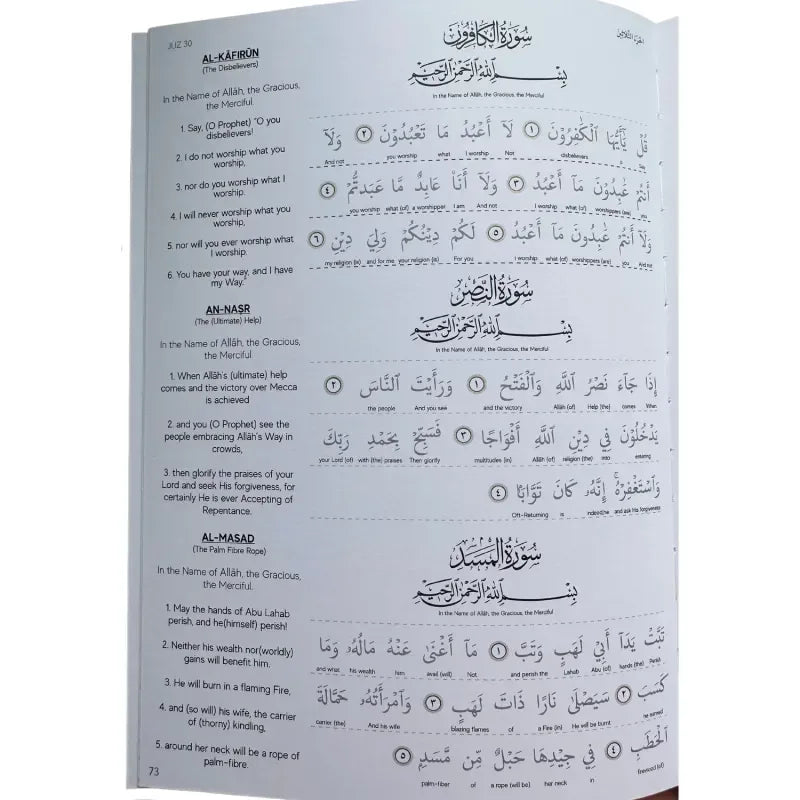 JUZ 30
AL-KĀFIRŪN
(The Disbelievers)
In the Name of Allāh, the Gracious,
the Merciful
1. Say, (O Prophet) "O you
disbelievers!
2. I do not worship what you
worship,
3. nor do you worship what I
worship.
4. I will never worship what you
worship,
5. nor will you ever worship what
I worship.
6. You have your way, and I have
my Way."
AN-NAṢR
(The (Ultimate) Help)
In the Name of Allāh, the Gracious,
the Merciful
1. When Allāh's (ultimate) help
comes and the victory over Mecca
is achieved
2. and you (O Prophet) see the
people embracing Allāh's Way in
crowds,
3. then glorify the praises of your
Lord and seek His forgiveness, for
certainly He is ever Accepting of
Repentance.
AL-MASAD
(The Palm Fibre Rope)
In the Name of Allāh, the Gracious,
the Merciful.
1. May the hands of Abu Lahab
perish, and he(himself) perish!
2. Neither his wealth nor(worldly)
gains will benefit him.
3. He will burn in a flaming Fire,
4. and (so will) his wife, the carrier
of (thorny) kindling,
5. around her neck will be a rope of
palm-fibre.
73
الجزء الثلاثين
سُورَةُ الْكَافِرُونَ
بِسْمِ اللَّهِ الرَّحْمَٰنِ الرَّحِيمِ
In the Name of Allāh, the Gracious, the Merciful
قُلْ يَٰٓأَيُّهَا الْكَٰفِرُونَ ١ لَآ أَعْبُدُ مَا تَعْبُدُونَ ٢ وَلَآ
And not you worship what I worship Not disbelievers Say
أَنتُمْ عَٰبِدُونَ مَآ أَعْبُدُ ٣ وَلَآ أَنَا۠ عَابِدٌ مَّا عَبَدتُّمْ ٤
you worship what (of) a worshipper I am And not I worship what (of) worshippers (are) you
وَلَآ أَنتُمْ عَٰبِدُونَ مَآ أَعْبُدُ ٥ لَكُمْ دِينُكُمْ وَلِيَ دِينِ ٦
my religion (is) and for me your religion (is) For you I worship what (of) worshippers (are) you And not
سُورَةُ النَّصْرِ
بِسْمِ اللَّهِ الرَّحْمَٰنِ الرَّحِيمِ
In the Name of Allāh, the Gracious, the Merciful
إِذَا جَآءَ نَصْرُ اللَّهِ وَالْفَتْحُ ١ وَرَأَيْتَ النَّاسَ ٢
the people And you see and the victory Allāh (of) Help (the) comes When
يَدْخُلُونَ فِي دِينِ اللَّهِ أَفْوَاجًا ٣ فَسَبِّحْ بِحَمْدِ رَبِّكَ
your Lord (of) with (the) praises Then glorify multitudes (in) Allāh (of) religion (the) into entering
وَاسْتَغْفِرْهُ ۚ إِنَّهُۥ كَانَ تَوَّابًا ٤
Oft-Returning is indeed,he and ask his forgiveness
سُورَةُ الْمَسَدِ
بِسْمِ اللَّهِ الرَّحْمَٰنِ الرَّحِيمِ
In the Name of Allāh, the Gracious, the Merciful
تَبَّتْ يَدَآ أَبِي لَهَبٍ وَتَبَّ ١ مَآ أَغْنَىٰ عَنْهُ مَالُهُۥ وَمَا
and what his wealth him avail (will) Not and perish the Lahab Abu (of) hands (the) Perish
كَسَبَ ٢ سَيَصْلَىٰ نَارًا ذَاتَ لَهَبٍ ٣ وَامْرَأَتُهُۥ حَمَّالَةَ
carrier (the) And his wife blazing flames of a Fire (in) He will be burnt he earned
الْحَطَبِ ٤ فِي جِيدِهَا حَبْلٌ مِّن مَّسَدٍ ٥
palm-fiber of a rope (will be) her neck in firewood (of)